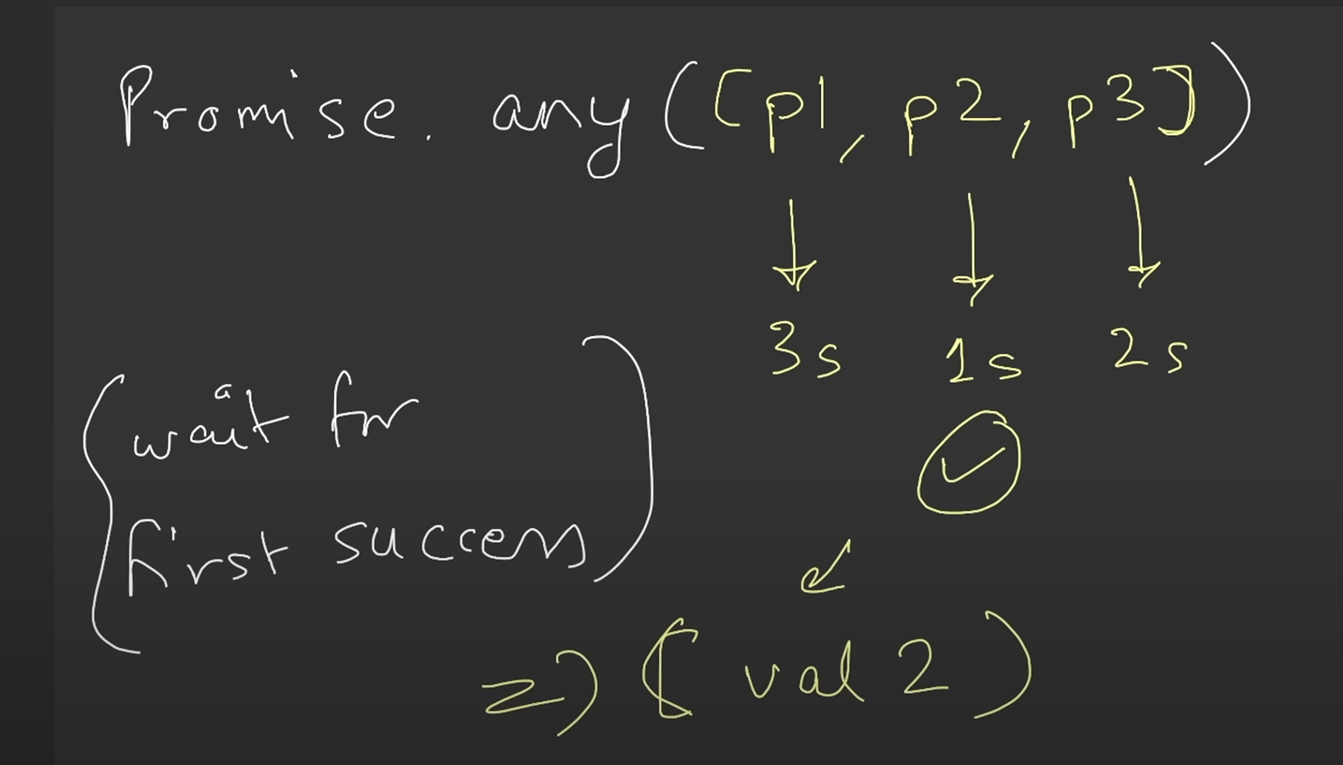 Promise. any([p1, p2, p3])
3s 1s 2s
(wait for
first success)
=> (val 2)